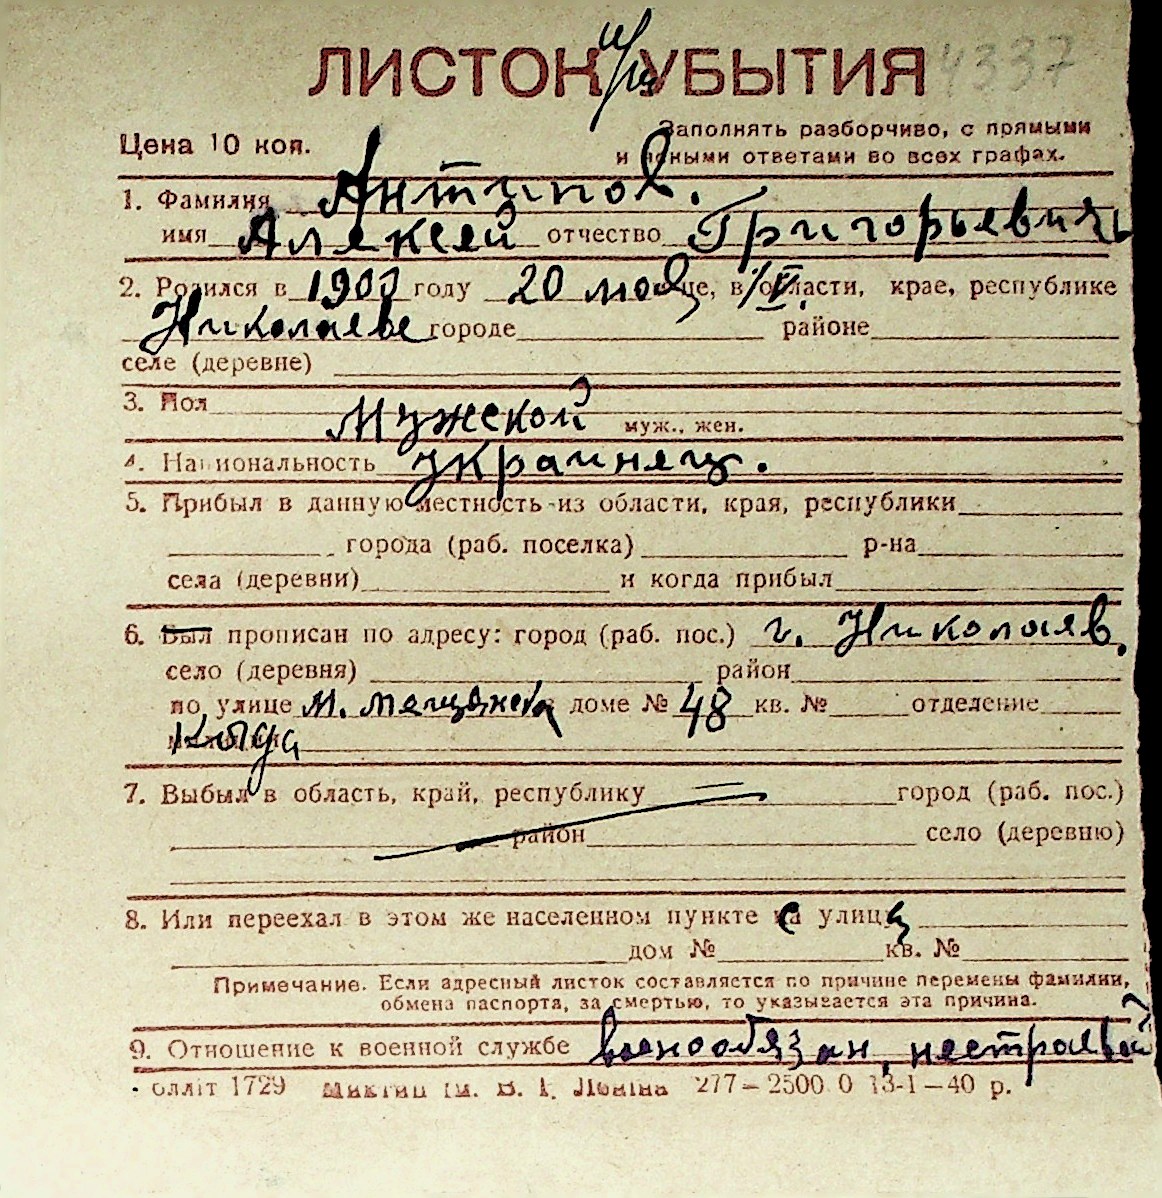 ЛИСТОК УБЫТИЯ 4337
Цена 10 коп.
Заполнять разборчиво, с прямыми
и ясными ответами во всех графах.
1. Фамилия Антипов.
имя Алексей отчество Григорьевичь
2. Родился в 1900 году 20 м-це, в IV области, крае, республике
Николаеве городе районе
селе (деревне)
3. Пол Мужской муж., жен.
4. Национальность украинец.
5. Прибыл в данную местность из области, края, республики
города (раб. поселка) р-на
села (деревни) и когда прибыл
6. Был прописан по адресу: город (раб. пос.) г. Николаев.
село (деревня) район
по улице М. Мещанска доме № 48 кв. № отделение
7. Выбыл в область, край, республику город (раб. пос.)
район село (деревню)
8. Или переехал в этом же населенном пункте с улицы
дом № кв. №
Примечание. Если адресный листок составляется по причине перемены фамилии,
обмена паспорта, за смертью, то указывается эта причина.
9. Отношение к военной службе воснообязан, нестроевой
оллiт 1729 iм. В. І. Ленiна 277—2500.0 13-1—40 р.